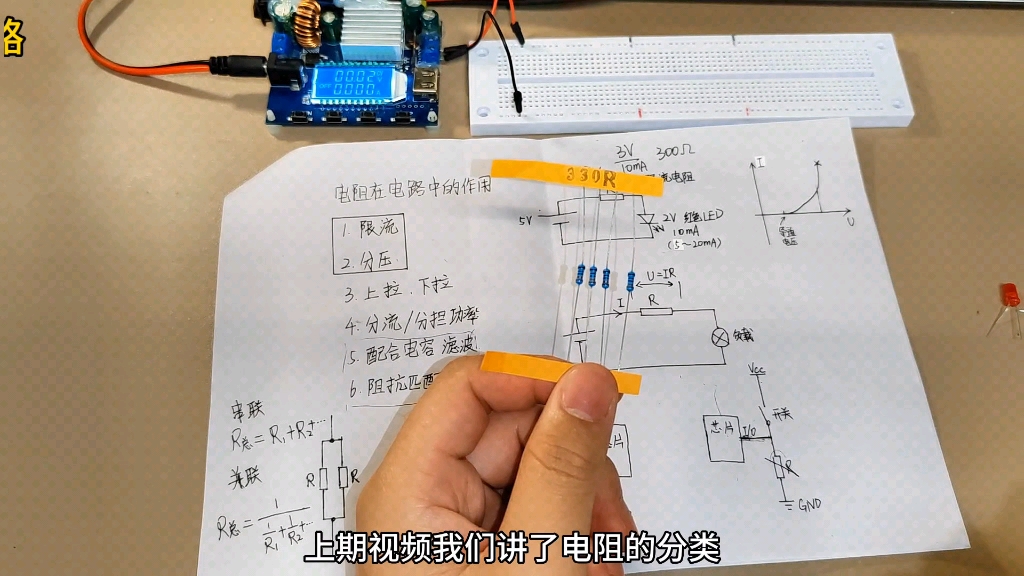 络
0.002
OFF 0.000A
电阻在电路中的作用
1. 限流
2. 分压
3. 上拉. 下拉
4. 分流/分担功率
5. 配合电容 滤波
6. 阻抗匹配
串联
R总=R₁+R₂+···
并联
R总= 1/(1/R₁+1/R₂+···)
R
R
3V
10mA
300Ω
330R
流电阻
5V
2V 红色LED
10mA
(5~20mA)
I
U
导通
电压
U=IR
I
R
负载
芯片
Vcc
开关
芯片
I/O
R
GND
上期视频我们讲了电阻的分类